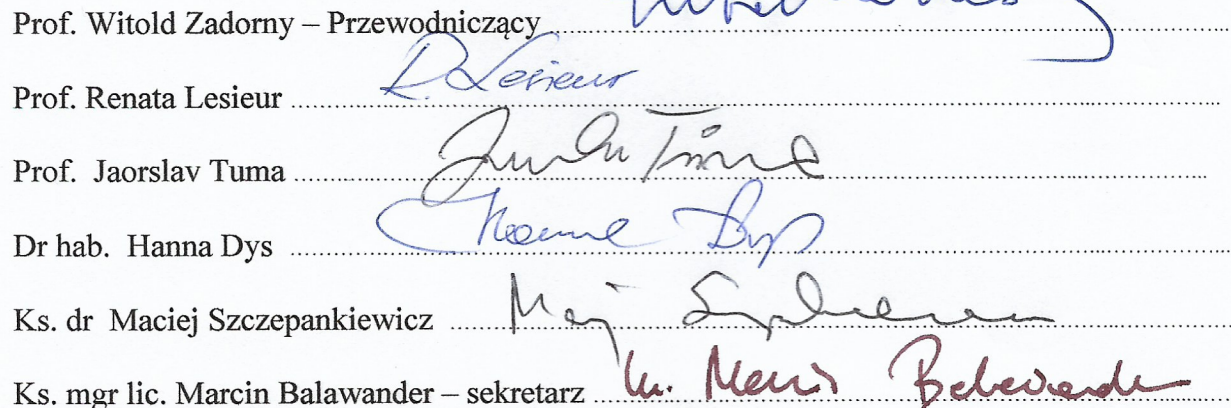 Prof. Witold Zadorny – Przewodniczący
Prof. Renata Lesieur R. Lesieur
Prof. Jaorslav Tuma Tuma
Dr hab. Hanna Dys Hanna Dys
Ks. dr Maciej Szczepankiewicz
Ks. mgr lic. Marcin Balawander – sekretarz